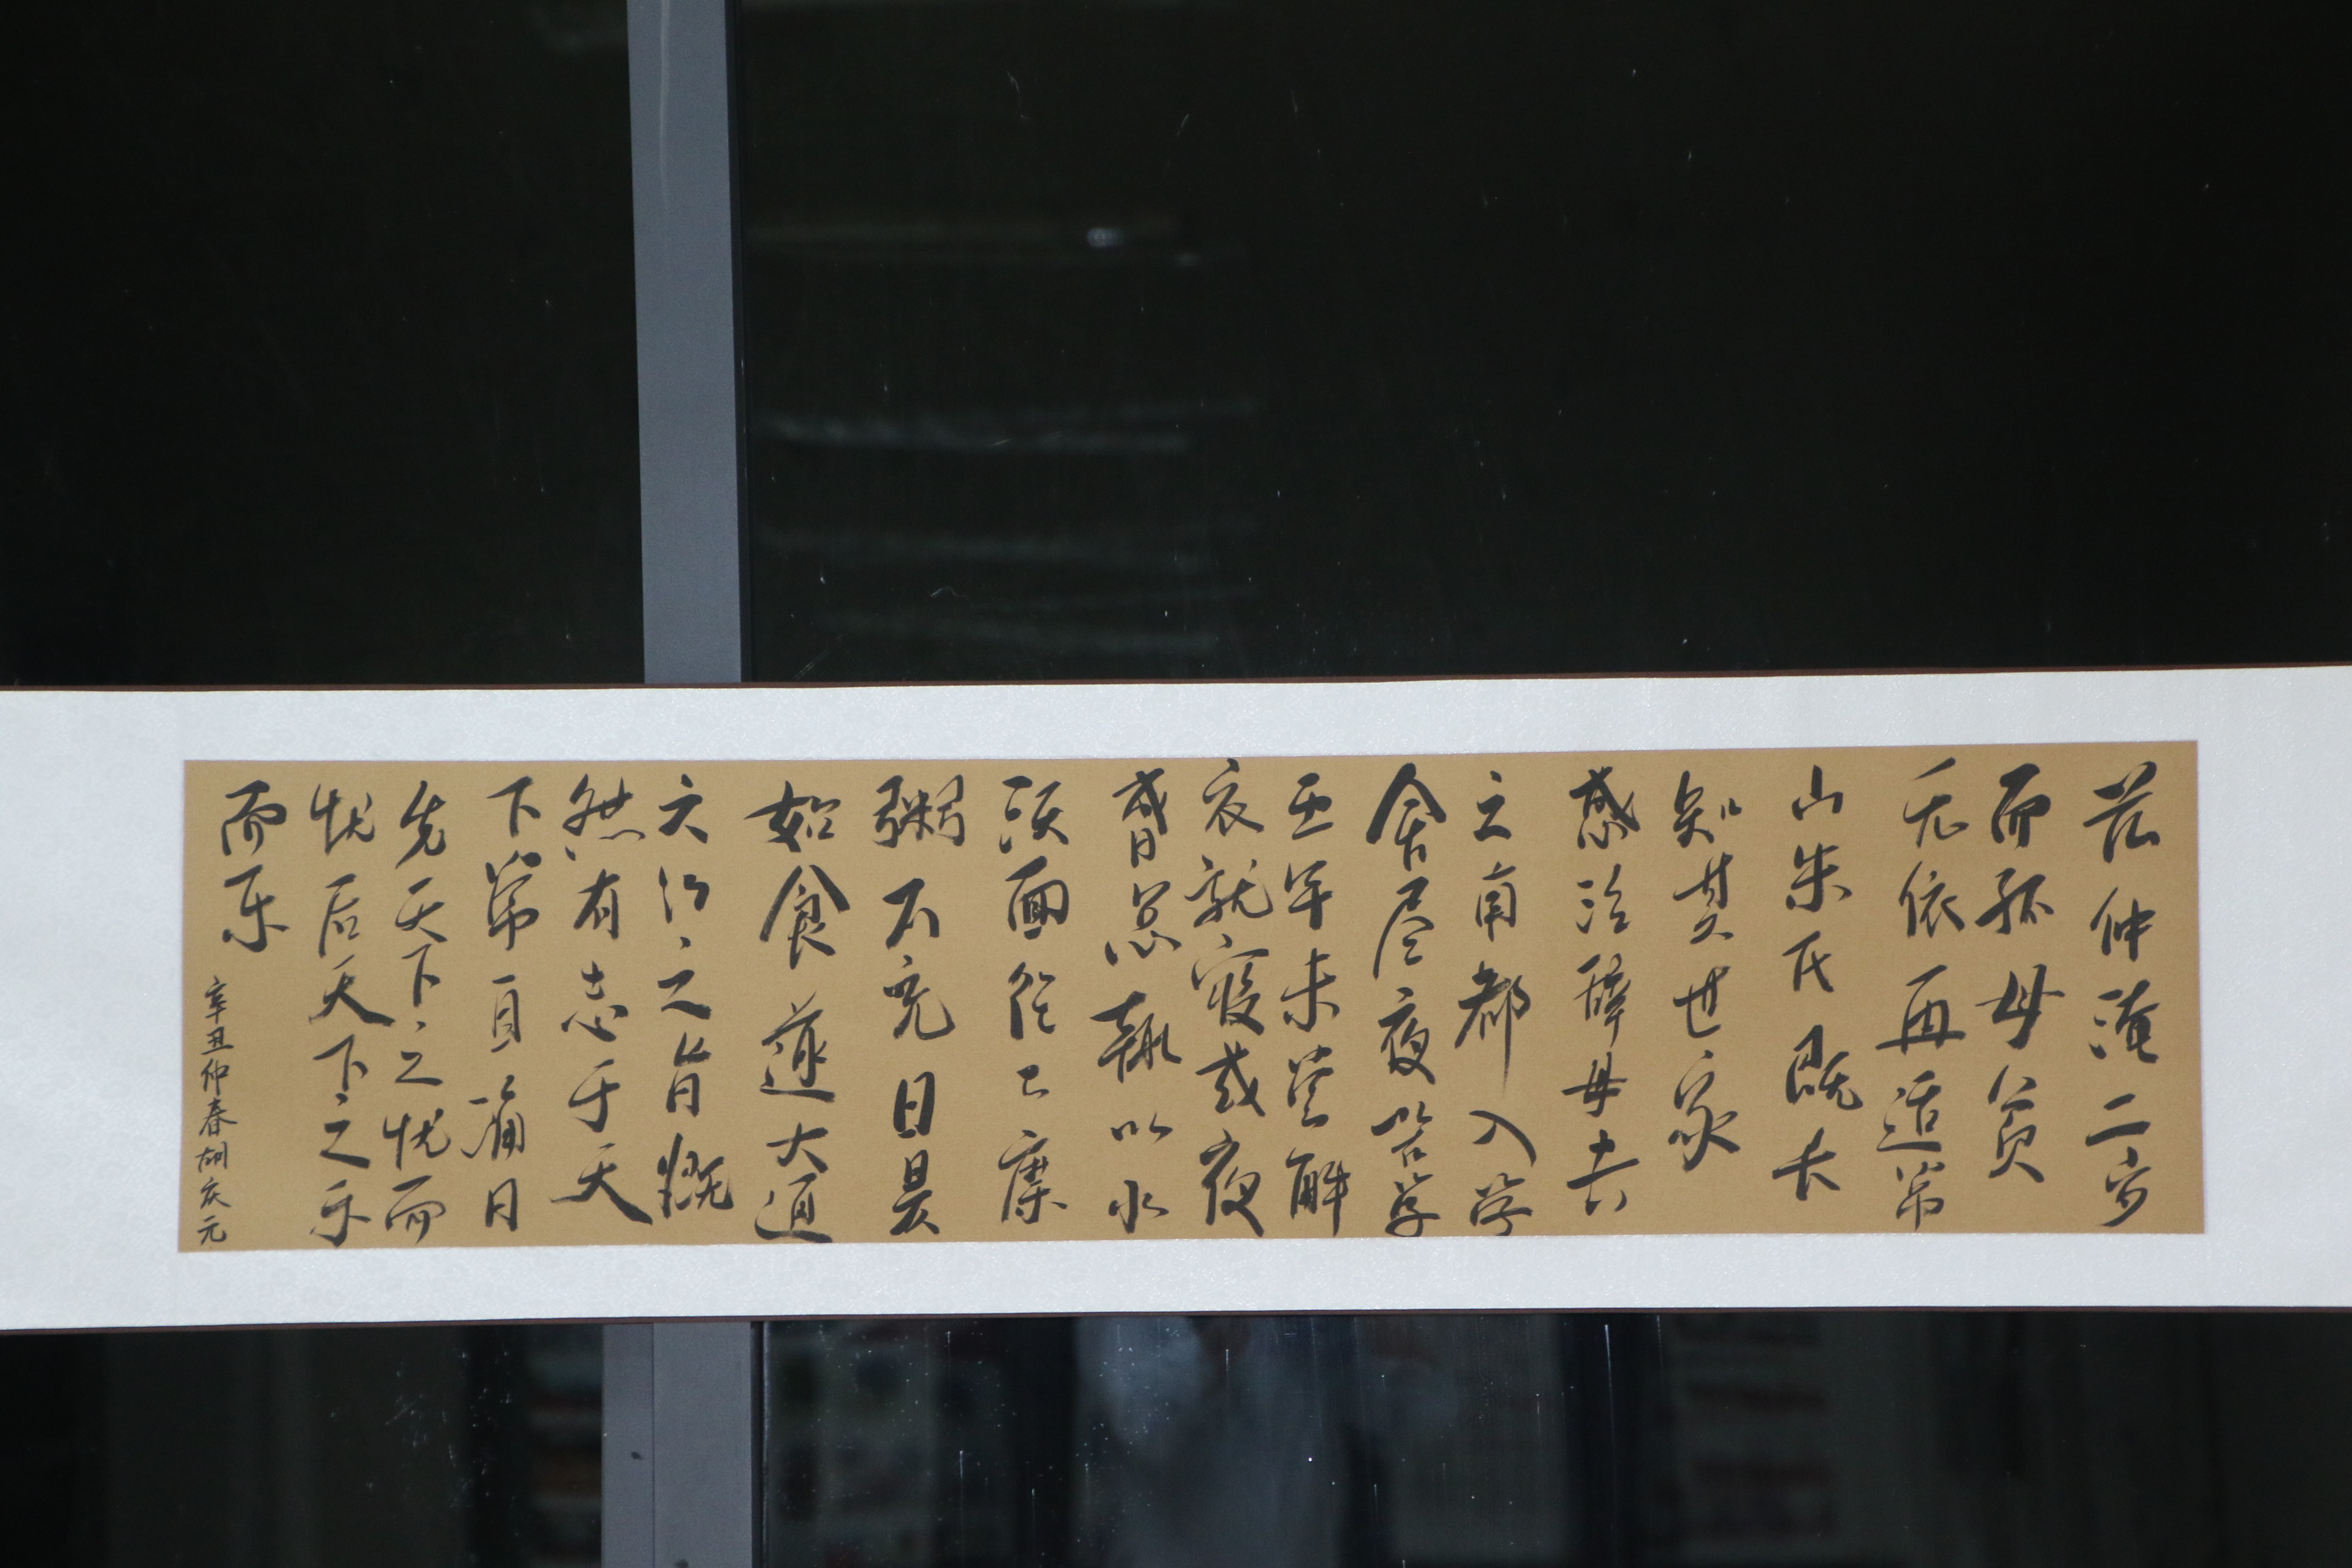 范仲淹二岁
而孤母贫
无依再适常
山朱氏既长
知其世家
感泣辞母去
之南都入学
舍昼夜苦学
五年未尝解
衣就寝或夜
昏怠辄以水
沃面往々糜
粥不充日昃
始食遂大通
六经之旨慨
然有志于天
下常自诵曰
先天下之忧而
忧后天下之乐
而乐
辛丑仲春胡庆元